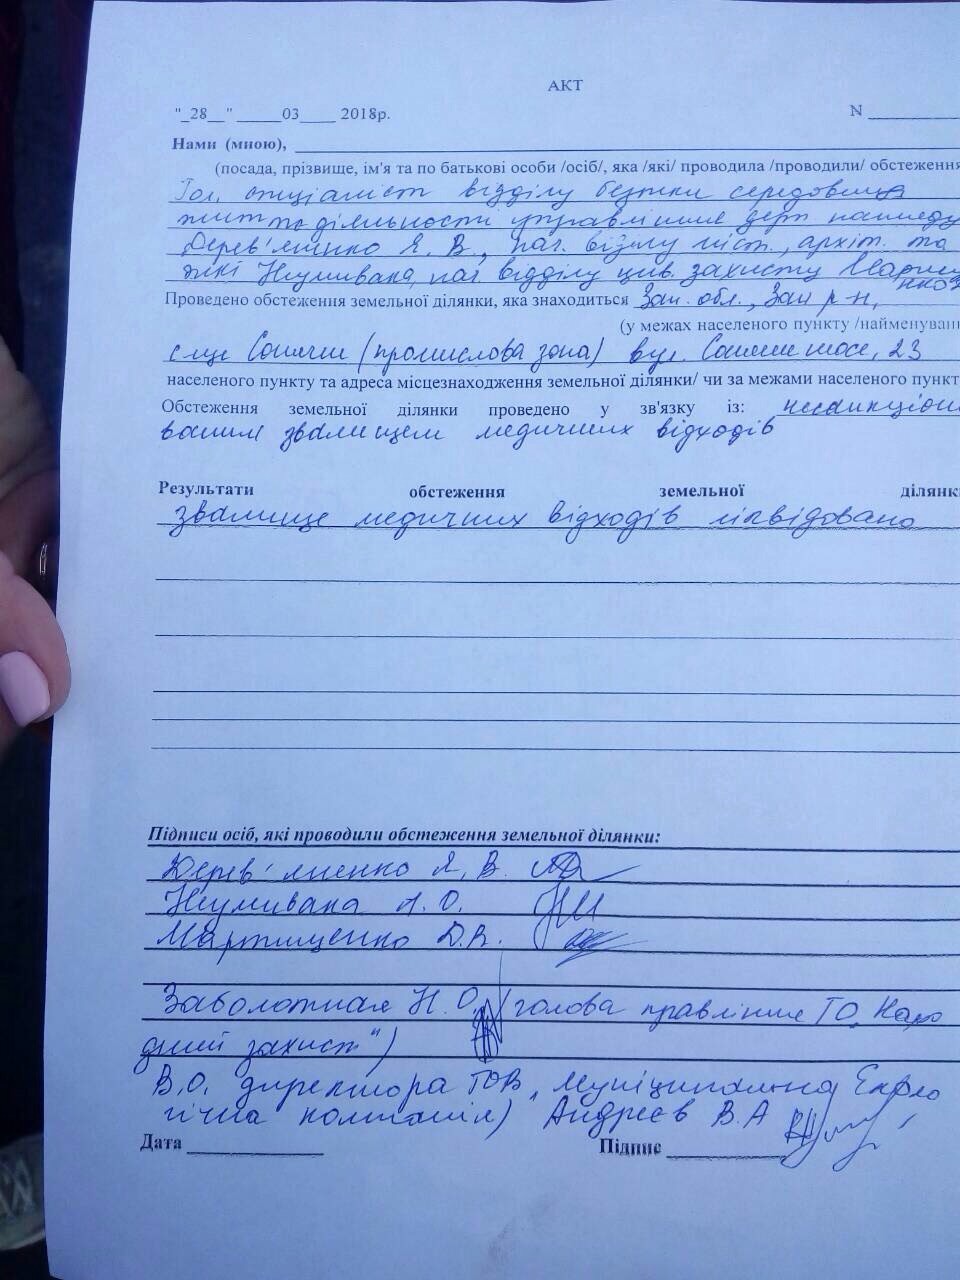 АКТ
"_28__" _____03____ 2018р. N
Нами (мною),
(посада, прізвище, ім'я та по батькові особи /осіб/, яка /які/ проводила /проводили/ обстеження
Гол. спеціаліст відділу безпеки середовища
життєдіяльности управління держ нагляду
Дерев'яненко Я. В., нач. відділу міст., архіт. та
Неумивака, нач. відділу цив. захисту Мартищенко
Проведено обстеження земельної ділянки, яка знаходиться Зап. обл., Зап р-н,
(у межах населеного пункту /найменуван
с-ще Сонячн (промислова зона) вул. Сонячне шосе, 23
населеного пункту та адреса місцезнаходження земельної ділянки/ чи за межами населеного пункт
Обстеження земельної ділянки проведено у зв'язку із: несанкціоно
ваним звалищем медичних відходів
Результати обстеження земельної ділянк
звалище медичних відходів ліквідовано
Підписи осіб, які проводили обстеження земельної ділянки:
Дерев'яненко Я. В.
Неумивака А. О.
Мартищенко Д.В.
Заболотная Н. О. (голова правління ГО „Наро
дний захист")
В.О. директора ТОВ „Муніципальна Еколо
гічна компанія) Андреєв В.А
Дата Підпис